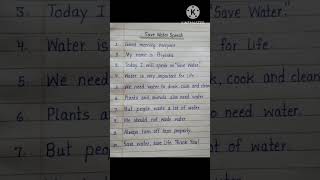 Save Water Speech
1. Good morning everyone
2. My name is Priyanka
3. Today I will speak on "Save Water."
4. Water is very important for life.
5. We need water to drink, cook and clean
6. Plants and animals also need water
7. But people waste a lot of water.
8. We should not waste water
9. Always turn off taps properly.
10. Save water, Save Life. Thank You!
3. Today I "Save Water."
4. Water is for Life.
5. We need cook and clean
6. Plants a water
7. But people water.